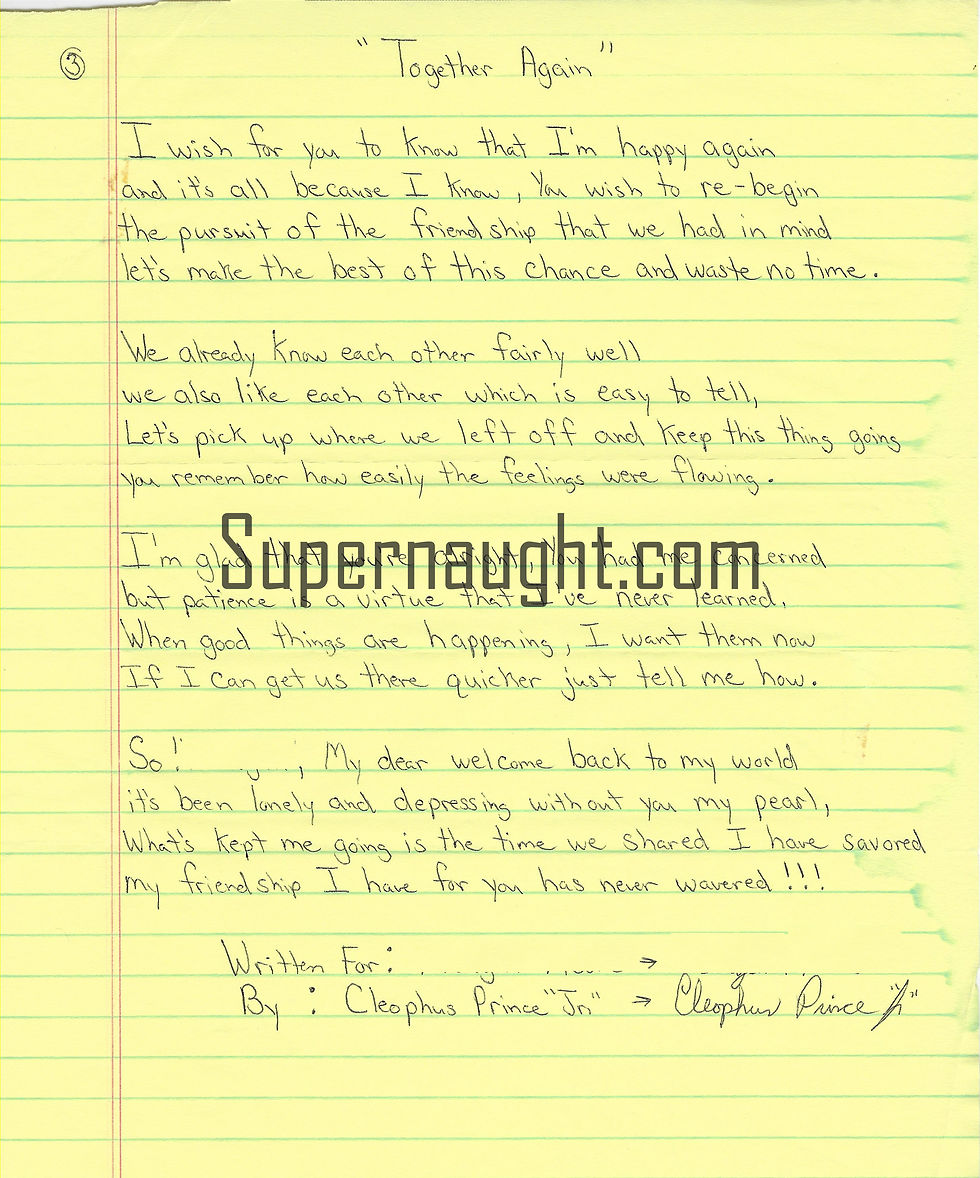 ③ "Together Again"
I wish for you to know that I'm happy again
and it's all because I know, You wish to re-begin
the pursuit of the friendship that we had in mind
let's make the best of this chance and waste no time.
We already know each other fairly well
we also like each other which is easy to tell,
Let's pick up where we left off and keep this thing going
you remember how easily the feelings were flowing.
I'm glad that you're alright, You had me concerned
Supernaught.com
but patience is a virtue that I've never learned.
When good things are happening, I want them now
If I can get us there quicker just tell me how.
So! , My dear welcome back to my world
it's been lonely and depressing without you my pearl,
What's kept me going is the time we shared I have savored
my friendship I have for you has never wavered!!!
Written For: →
By: Cleophus Prince "Jr" → Cleophus Prince "Jr"